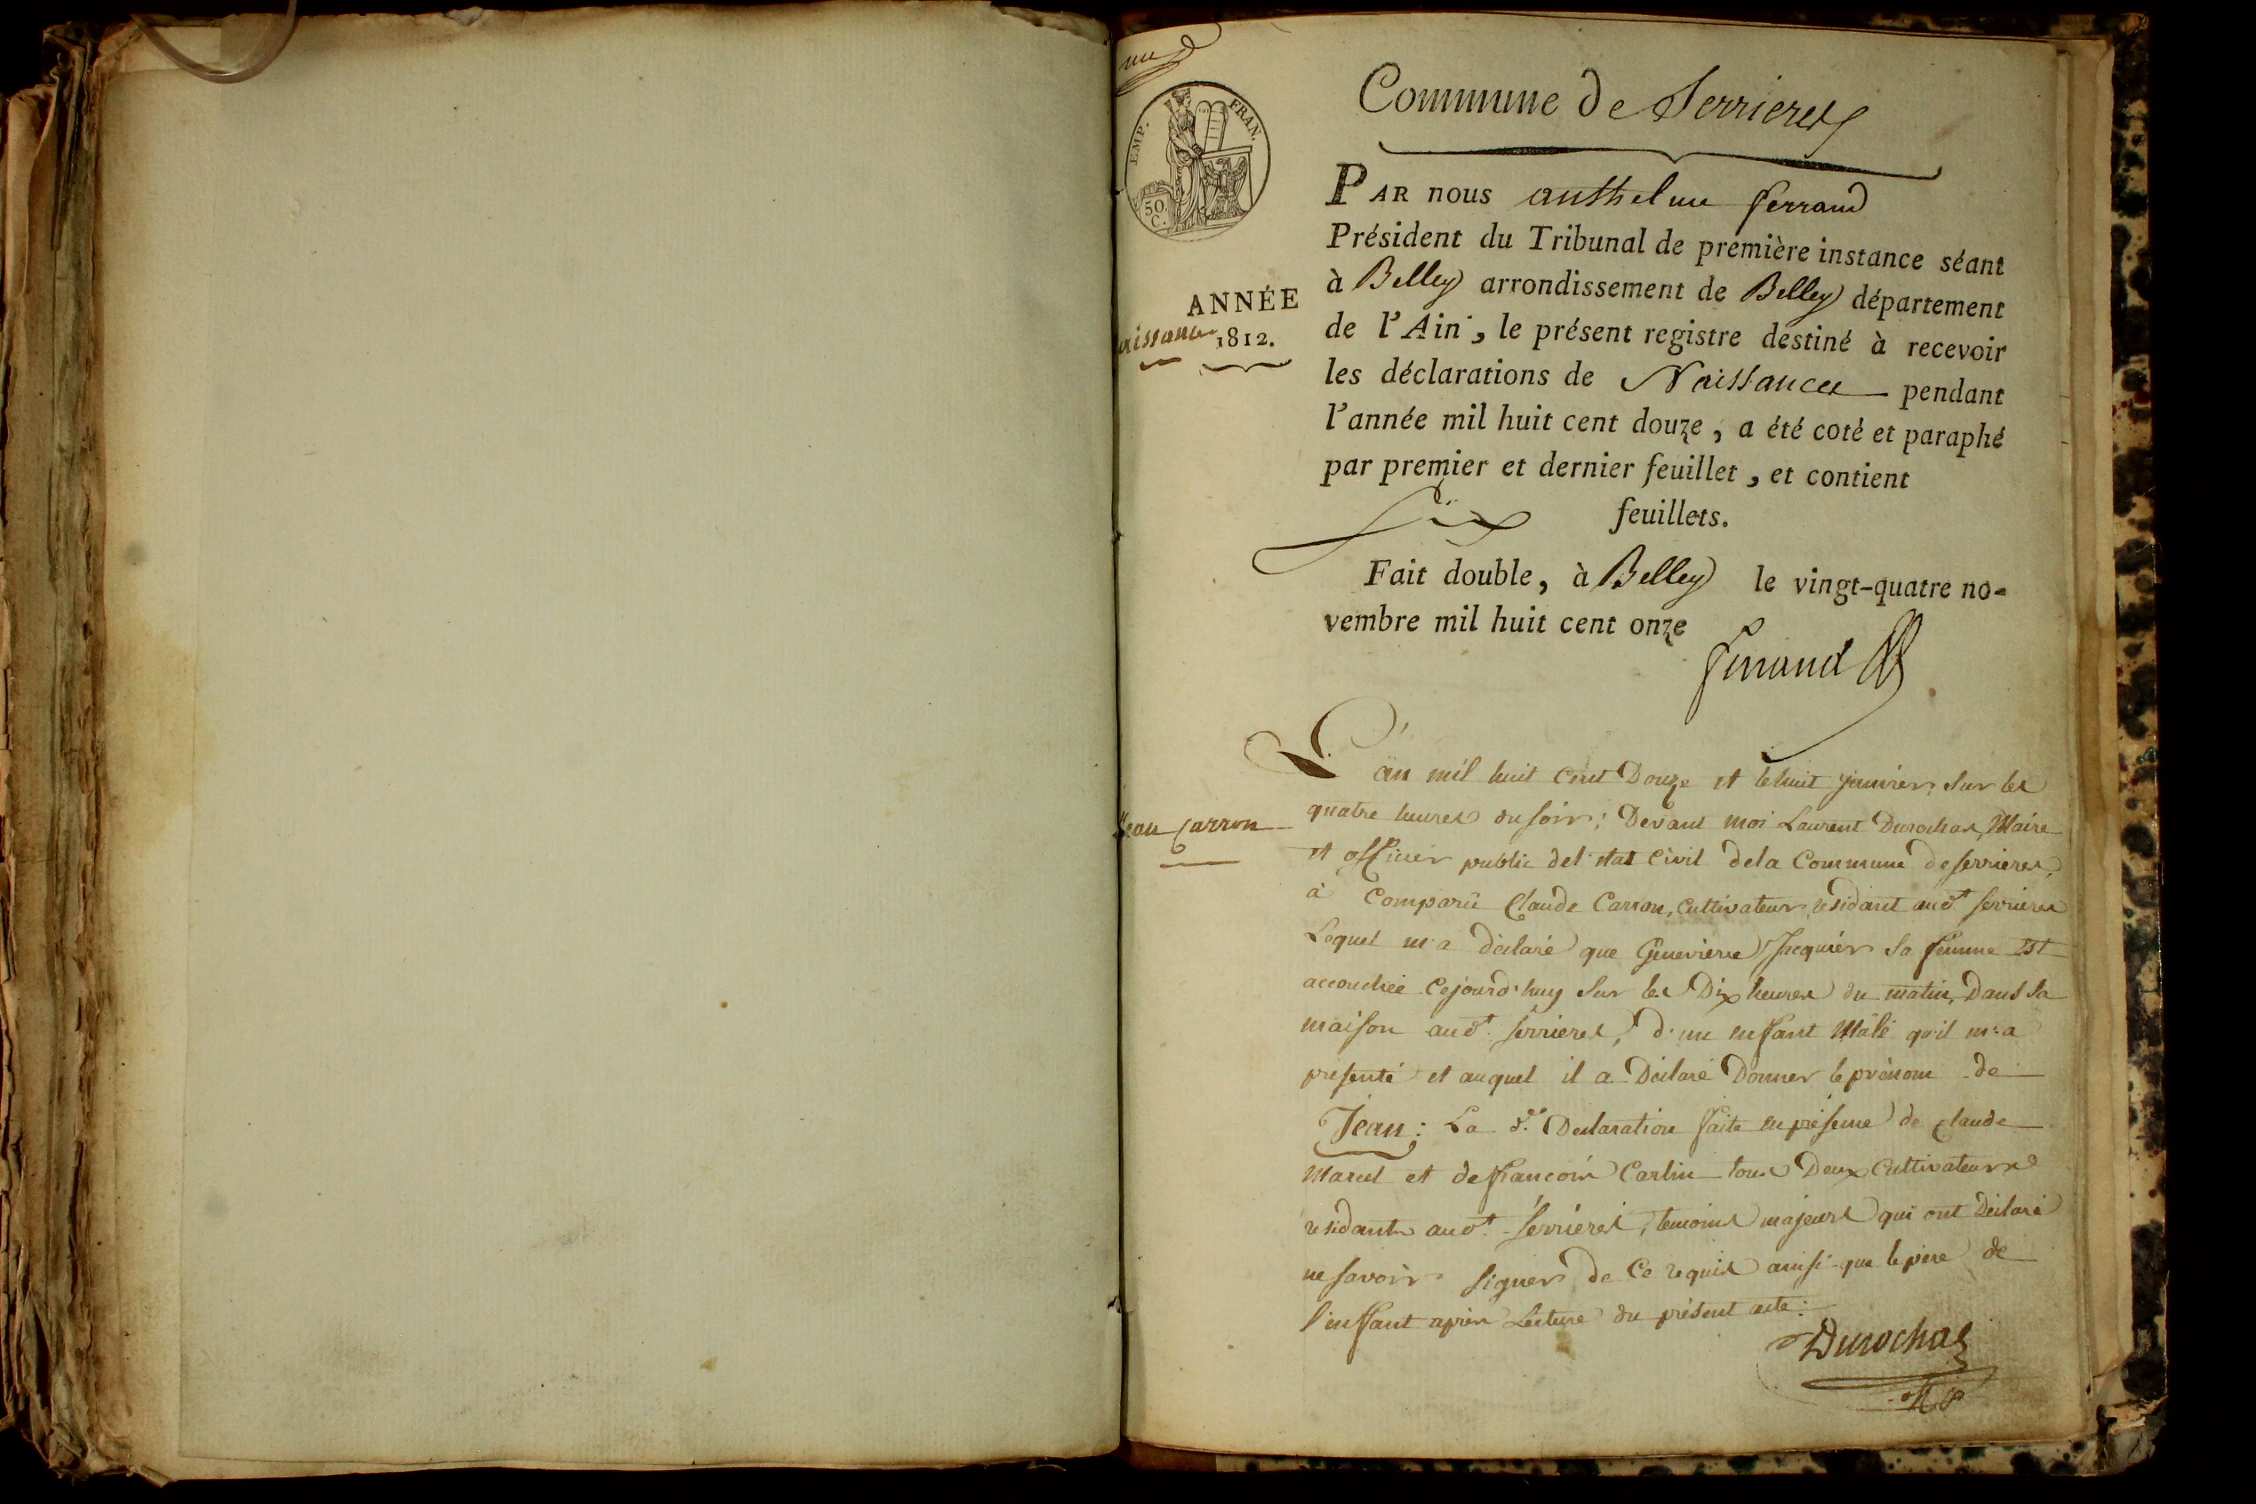 Commune de Serrieres
EMP. FRAN.
50.
C.
PAR nous anthelme ferrand
Président du Tribunal de première instance séant
à Belley arrondissement de Belley département
de l'Ain, le présent registre destiné à recevoir
les déclarations de Naissances pendant
l'année mil huit cent douze, a été coté et paraphé
par premier et dernier feuillet, et contient
six feuillets.
Fait double, à Belley le vingt-quatre no-
vembre mil huit cent onze
ferrand
ANNÉE
1812.
aissance
L'an mil huit cent Douze et le huit janvier, sur les
quatre heures du soir; Devant moi Laurent Durochas, Maire
et officier public del'etat Civil dela Commune de serrieres,
à Comparü Claude Carron, Cultivateur, residant aud.t serrieres
Lequel m'a déclaré que Genevieve Jacquier sa femme Est
accouchée Cejourd'huy sur les Dix heures du matin, Dans sa
maison aud.t serrieres, d'un enfant Mâle qu'il m'a
présenté et auquel il a Déclaré Donner le prénom de
Jean: La d.e Declaration faite en présence de Claude
Marcel et de françois Carlin tous Deux Cultivateurs
residants aud.t Serrières, temoins majeurs qui ont Déclaré
ne savoir signer de Ce requis ainsi que le père de
l'enfant après Lecture du présent acte:
Durochas
Jean Carron